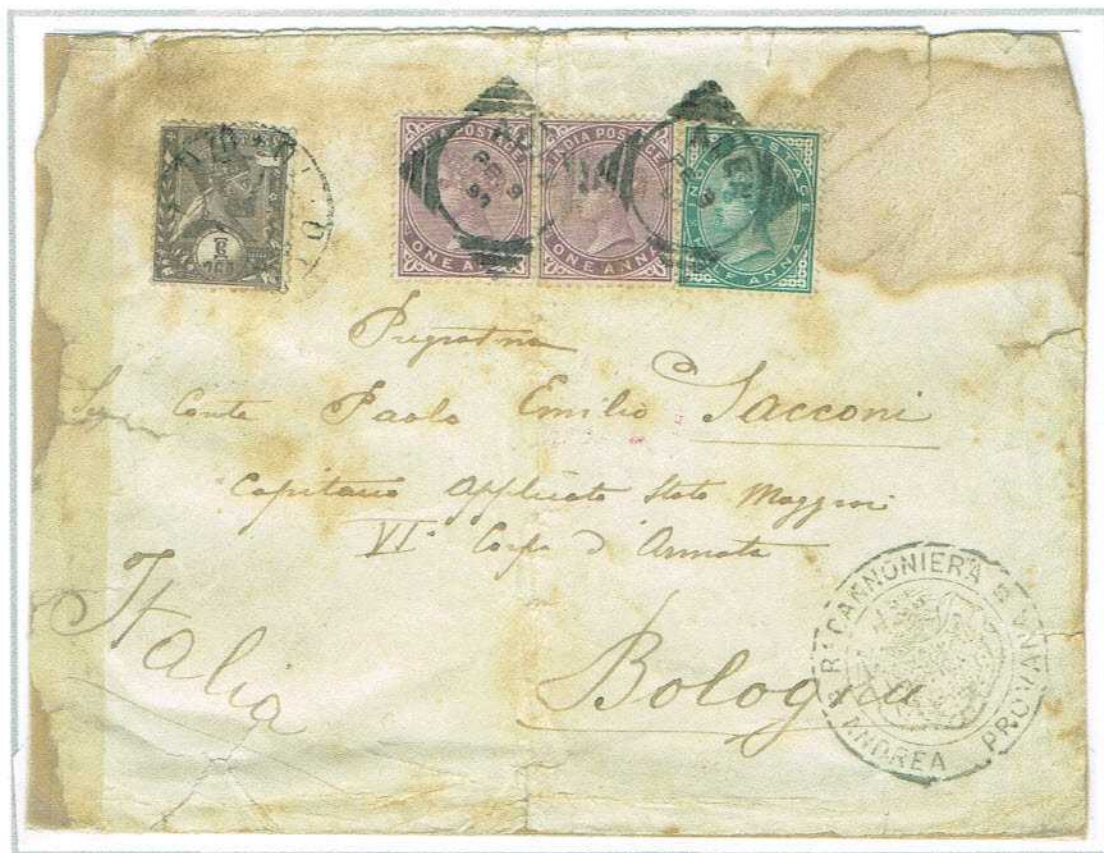 INDIA POSTAGE
ONE ANNA
INDIA POSTAGE
ONE ANNA
INDIA POSTAGE
HALF ANNA
ADEN
ADEN
Conte Paolo Emilio Sacconi
Capitano Applicato Stato Maggiore
VI° Corpo d'Armata
Bologna
Italia
R. CANNONIERA
ANDREA PROVANA